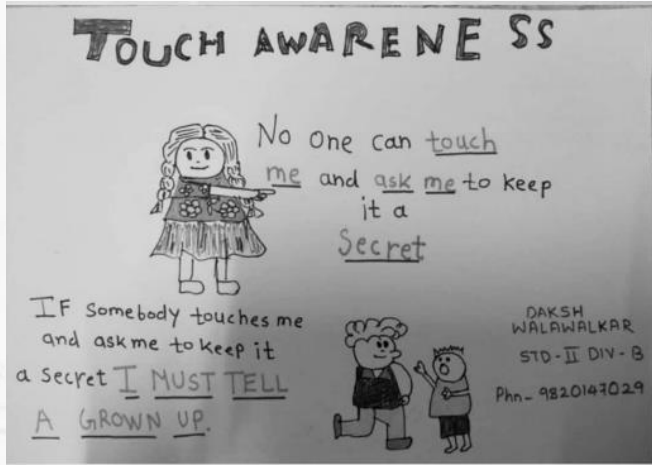 TOUCH AWARENESS
No one can touch
me and ask me to keep
it a
Secret
IF Somebody touches me
and ask me to keep it
a Secret I MUST TELL
A GROWN UP.
DAKSH
WALAWALKAR
STD-II DIV-B
Phn- 9820147029